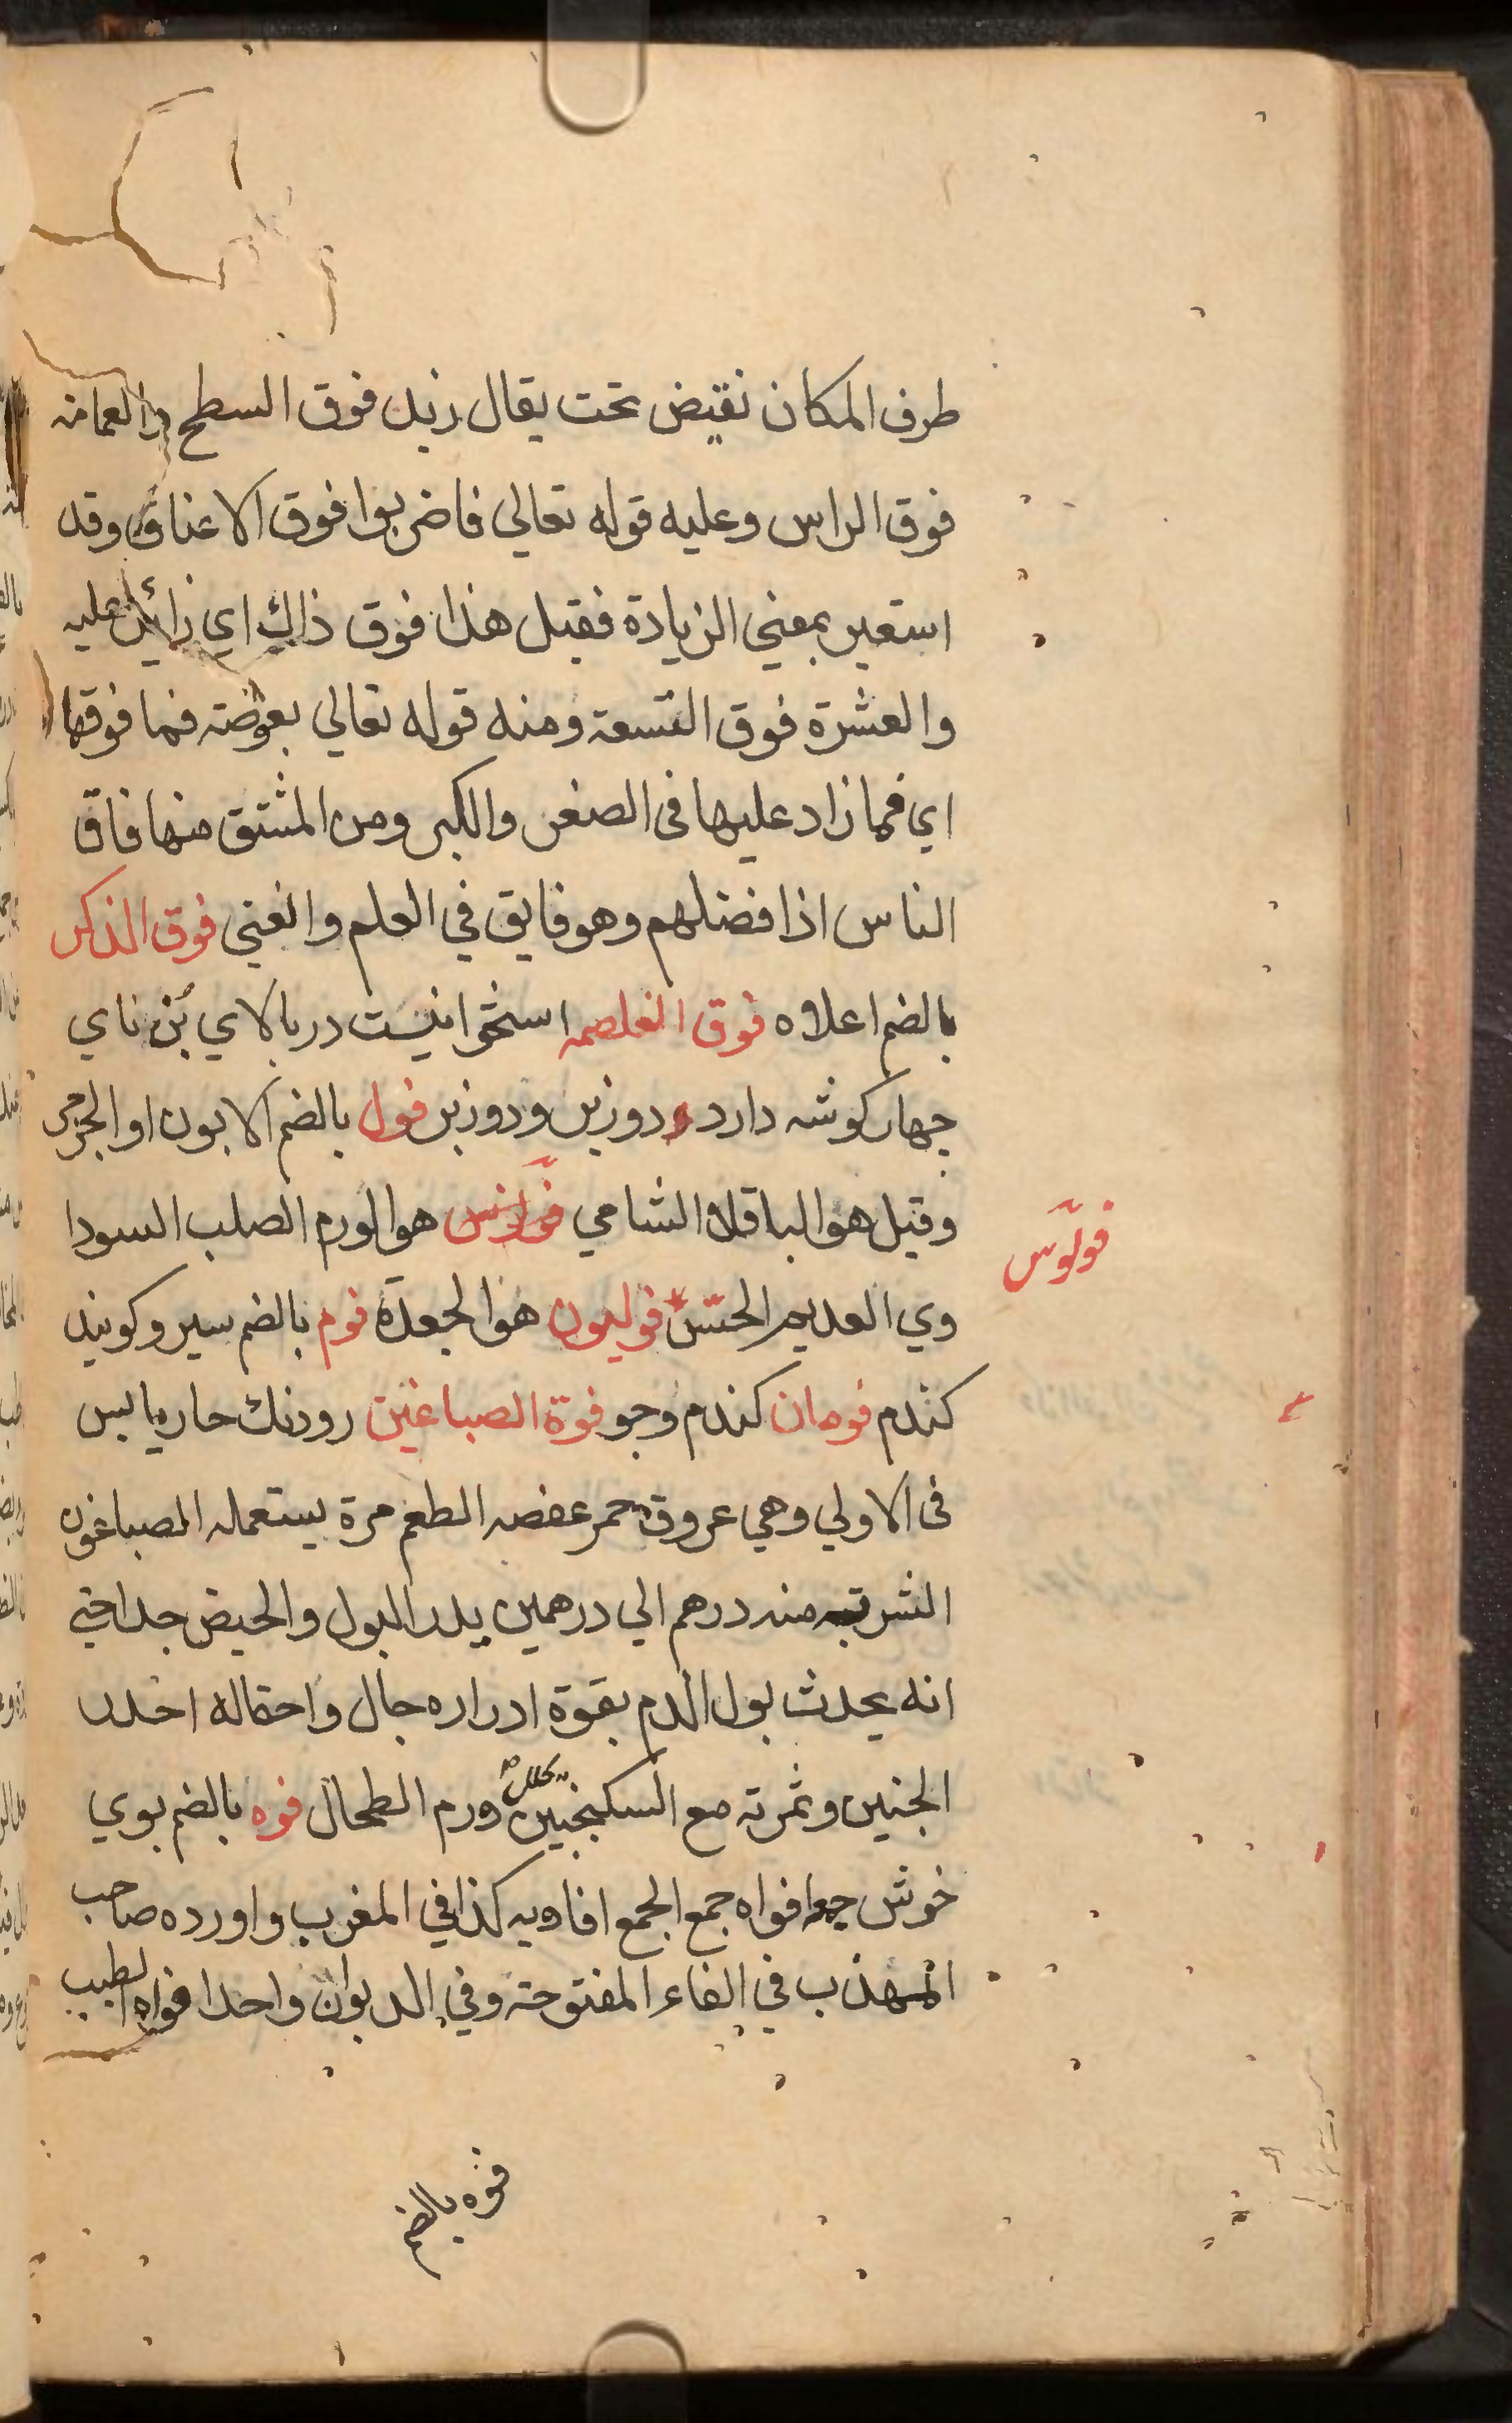 طرف المكان نقيض تحت يقال زيد فوق السطح والعمامة
فوق الراس وعليه قوله تعالي فاضربوا فوق الاعناق وقد
استعير بمعني الزيادة فقيل هذا فوق ذاك اي زائد عليه
والعشرة فوق التسعة ومنه قوله تعالي بعوضة فما فوقها
اي فما زاد عليها في الصغر والكبر ومن المشتق منها فاق
الناس اذا فضلهم وهو فايق في العلم والغني فوق الذكر
بالضم اعلاه فوق الغلصمه استخوانيست در بالاي بُن ناي
جهار كوشه دارد دو زبر و دو زير فول بالضم الابون او الجرجر
وقيل هو الباقلا الشامي هو الورم الصلب السودا
فولوّس
وي العديم الحسّ فوليون هو الجعدة فوم بالضم سير وكويند
كندم فومان كندم وجو فوة الصباغين رودنك حار يابس
في الاولي وهي عروق حمر عفصه الطعم مرة يستعمله الصباغون
الشربة منه درهم الي درهمين يدر البول والحيض جدا حتي
انه يحدث بول الدم بقوة ادراره جال واحتماله احدر
الجنين وثمرته مع السكنجبين يحلل ورم الطحال فوه بالضم بوي
خوش جمع افواه جمع الجمع افاويه كذا في المغرب واورده صاحب
المهذب في الفاء المفتوحة وفي الديوان واحد افواه الطيب
فوه بالضم